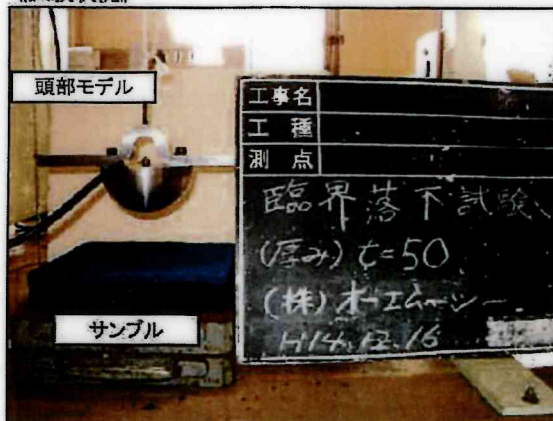 頭部モデル
サンプル
工事名
工 種
測 点
臨界落下試験
(厚み) t=50
(株)オーエムーシー
H14.12.16